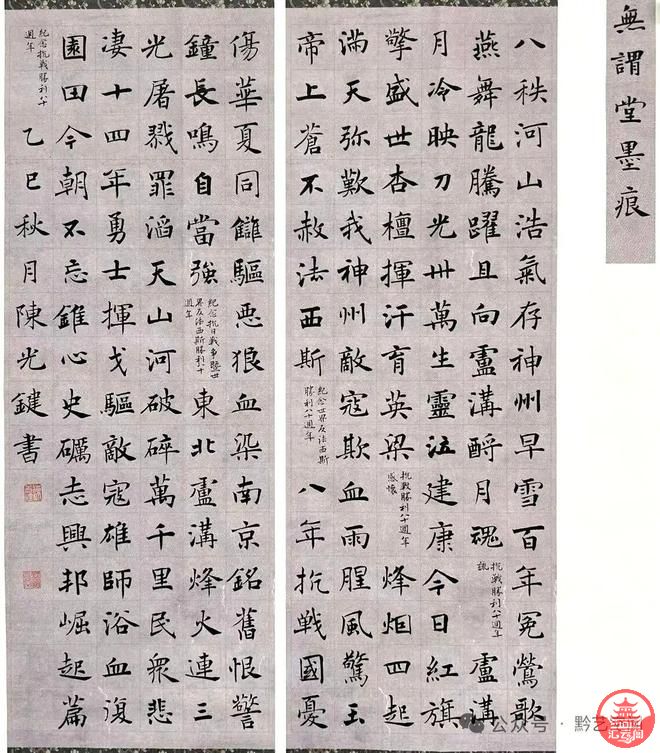 無謂堂墨痕
八秩河山浩氣存神州早雪百年冤鶯歌
燕舞龍騰躍且向盧溝酹月魂
抗戰勝利八十週年
詠
盧溝
月冷映刀光卅萬生靈泣建康今日紅旗
擎盛世杏檀揮汗育英梁
抗戰勝利八十週年
感懷
烽炬四起
滿天弥歎我神州敵寇欺血雨腥風驚玉
帝上蒼不赦法西斯
紀念世界反法西斯
勝利八十週年
八年抗戰國憂
傷華夏同讎驅惡狼血染南京銘舊恨警
鐘長鳴自當強
紀念抗日戰爭暨世
界反法西斯勝利八十
週年
東北盧溝烽火連三
光屠戮罪滔天山河破碎萬千里民衆悲
凄十四年勇士揮戈驅敵寇雄師浴血復
園田今朝不忘錐心史礪志興邦崛起篇
紀念抗戰勝利八十
週年
乙巳秋月陳光鍵書
公众号 · 黔艺